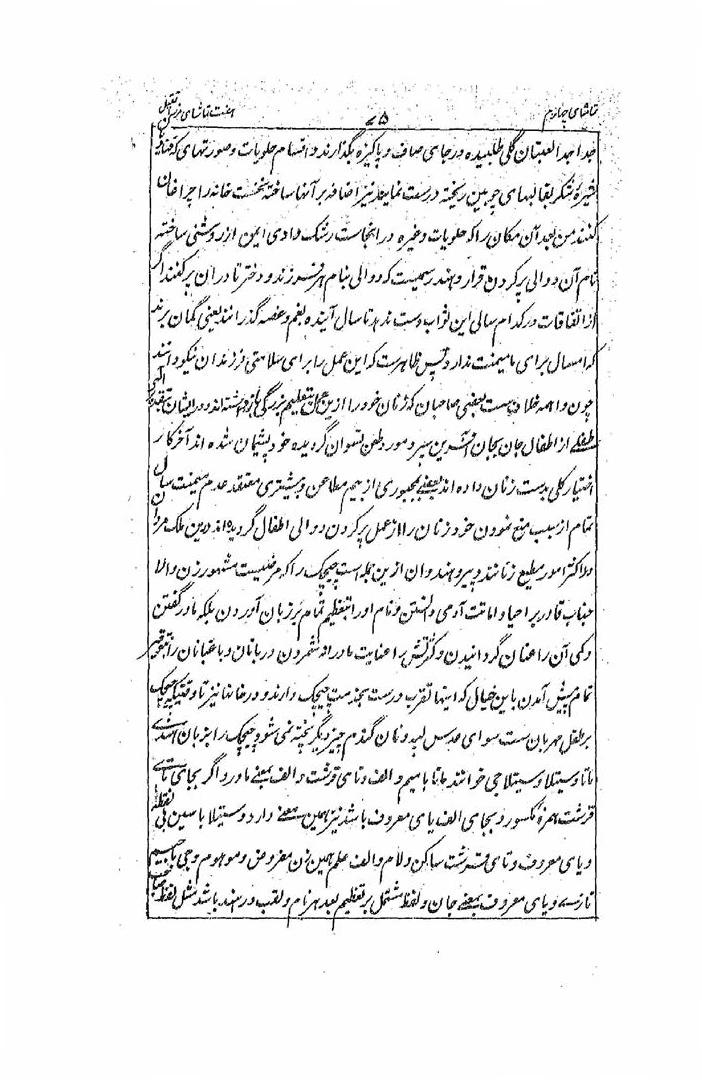 تماشای چهارم
۷۵
هفت تماشای مرزا قتیل
جدا جدا لعبتان گلی طلبیده در جای صاف و پاکیزه بگذارند و اقسام حلویات و صورتهای که قناد
شیرهٔ شکر بقالبهای چوبین ریخته درست نماید نیز اضافه بر آنها ساخته نخست خانه را چراغان
کنند من بعد آن مکان را که حلویات و غیره در انجاست رشک وادی ایمن از روشنی ساخته
نام آن دوالی پر کردن قرار دهند رسمیست که دوالی بنام هر فرزند و دختر تا در ان پر کنند اگر
از اتفاقات در کدام سالی این ثواب دست ندهد تا سال آینده بغم و غصه گذرانند یعنی گمان برند
که امسال برای ما میمنت ندارد پس ظاهرست که این عمل را برای سلامتی فرزندان نیکو دانند
چون واهمه خلاف بعضی صاحبان که زنان خود را ازین عمل بتعظیم بزرگی باز داشته اند و در ایشان بتقدیر الهی
طفلی از اطفال جان بجان آفرین سپرد مورد طعن نسوان گردیده خود پشیمان شده اند آخر کار
اختیار کلی بدست زنان داده اند بعضی بمجبوری از بیم مطاعن و بیشتری معتقد عدم میمنت سال
تمام از سبب منع نمودن خود زنان را از عمل پر کردن دوالی اطفال گردیده اند درین ملک مردان
در اکثر امور مطیع زنانند و پیرو هندوان ازین جمله است چیچک را که مرضیست مشهور زن والا
جناب قادر بر احیا و اماتت آدمی دانستن و نام او را بتعظیم تمام بر زبان آوردن بلکه مادر گفتن
و کمی آن را عنان گردانیدن و کثرتش را عنایت مادرانه شمردن و دربانان و باغبانان را بتوقیر
تمام پیش آمدن باین خیال که اینها تقرب درست بخدمت چیچک دارند و در خانها نیز تا وقتیکه چیچک
بر طفل مهربان ست سوای عدس لپه و نان گندم چیز دیگر پخته نمی شود و چیچک را بزبان هندی
ماتا و سیتلا و سیتلا جی خوانند ماتا با میم و الف و تای قرشت و الف بمعنی مادر و اگر بجای تای
قرشت همزه مکسور و بجای الف یای معروف باشد نیز همین معنی دارد و سیتلا با سین بی نقطه
و یای معروف و تای قرشت ساکن و لام و الف علم همین زن مفروض و موهوم و جی با جیم
تازی و یای معروف بمعنی جان و لفظ مشتمل بر تعظیم بعد هر نام و لقب در هند باشد مثل لفظ صاحب